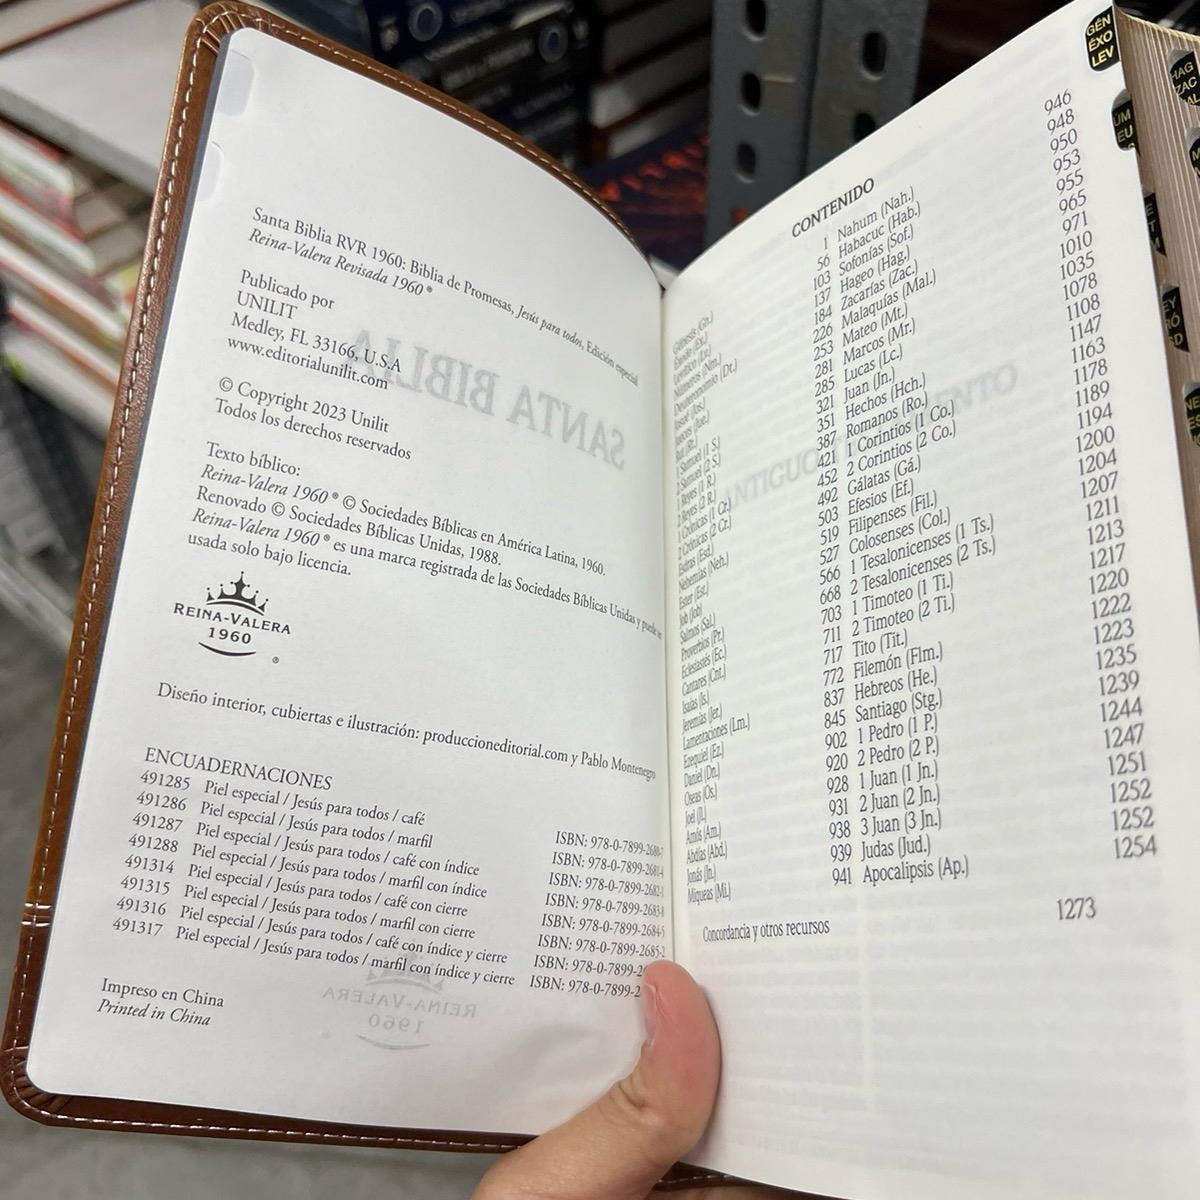 Santa Biblia RVR 1960: Biblia de Promesas, Jesús para todos, Edición especial
Reina-Valera Revisada 1960®
Publicado por
UNILIT
Medley, FL 33166, U.S.A
www.editorialunilit.com
© Copyright 2023 Unilit
Todos los derechos reservados
Texto bíblico:
Reina-Valera 1960® © Sociedades Bíblicas en América Latina, 1960.
Renovado © Sociedades Bíblicas Unidas, 1988.
Reina-Valera 1960® es una marca registrada de las Sociedades Bíblicas Unidas y puede ser
usada solo bajo licencia.
REINA-VALERA
1960
®
Diseño interior, cubiertas e ilustración: produccioneditorial.com y Pablo Montenegro
ENCUADERNACIONES
491285 Piel especial / Jesús para todos / café ISBN: 978-0-7899-2680-7
491286 Piel especial / Jesús para todos / marfil ISBN: 978-0-7899-2681-4
491287 Piel especial / Jesús para todos / café con índice ISBN: 978-0-7899-2682-1
491288 Piel especial / Jesús para todos / marfil con índice ISBN: 978-0-7899-2683-8
491314 Piel especial / Jesús para todos / café con cierre ISBN: 978-0-7899-2684-5
491315 Piel especial / Jesús para todos / marfil con cierre ISBN: 978-0-7899-2685-2
491316 Piel especial / Jesús para todos / café con índice y cierre ISBN: 978-0-7899-2
491317 Piel especial / Jesús para todos / marfil con índice y cierre ISBN: 978-0-7899-2
Impreso en China
Printed in China
CONTENIDO
Génesis (Gn.) 1
Éxodo (Ex.) 56
Levítico (Lv.) 103
Números (Nm.) 137
Deuteronomio (Dt.) 184
Josué (Jos.) 226
Jueces (Jue.) 253
Rut (Rt.) 281
1 Samuel (1 S.) 285
2 Samuel (2 S.) 321
1 Reyes (1 R.) 351
2 Reyes (2 R.) 387
1 Crónicas (1 Cr.) 421
2 Crónicas (2 Cr.) 452
Esdras (Esd.) 492
Nehemías (Neh.) 503
Ester (Est.) 519
Job (Job) 527
Salmos (Sal.) 566
Proverbios (Pr.) 668
Eclesiastés (Ec.) 703
Cantares (Cnt.) 711
Isaías (Is.) 717
Jeremías (Jer.) 772
Lamentaciones (Lm.) 837
Ezequiel (Ez.) 845
Daniel (Dn.) 902
Oseas (Os.) 920
Joel (Jl.) 928
Amós (Am.) 931
Abdías (Abd.) 938
Jonás (Jn.) 939
Miqueas (Mi.) 941
Nahum (Nah.) 946
Habacuc (Hab.) 948
Sofonías (Sof.) 950
Hageo (Hag.) 953
Zacarías (Zac.) 955
Malaquías (Mal.) 965
Mateo (Mt.) 971
Marcos (Mr.) 1010
Lucas (Lc.) 1035
Juan (Jn.) 1078
Hechos (Hch.) 1108
Romanos (Ro.) 1147
1 Corintios (1 Co.) 1163
2 Corintios (2 Co.) 1178
Gálatas (Gá.) 1189
Efesios (Ef.) 1194
Filipenses (Fil.) 1200
Colosenses (Col.) 1204
1 Tesalonicenses (1 Ts.) 1207
2 Tesalonicenses (2 Ts.) 1211
1 Timoteo (1 Ti.) 1213
2 Timoteo (2 Ti.) 1217
Tito (Tit.) 1220
Filemón (Flm.) 1222
Hebreos (He.) 1223
Santiago (Stg.) 1235
1 Pedro (1 P.) 1239
2 Pedro (2 P.) 1244
1 Juan (1 Jn.) 1247
2 Juan (2 Jn.) 1251
3 Juan (3 Jn.) 1252
Judas (Jud.) 1252
Apocalipsis (Ap.) 1254
Concordancia y otros recursos 1273
GÉN
ÉXO
LEV
HAG
ZAC